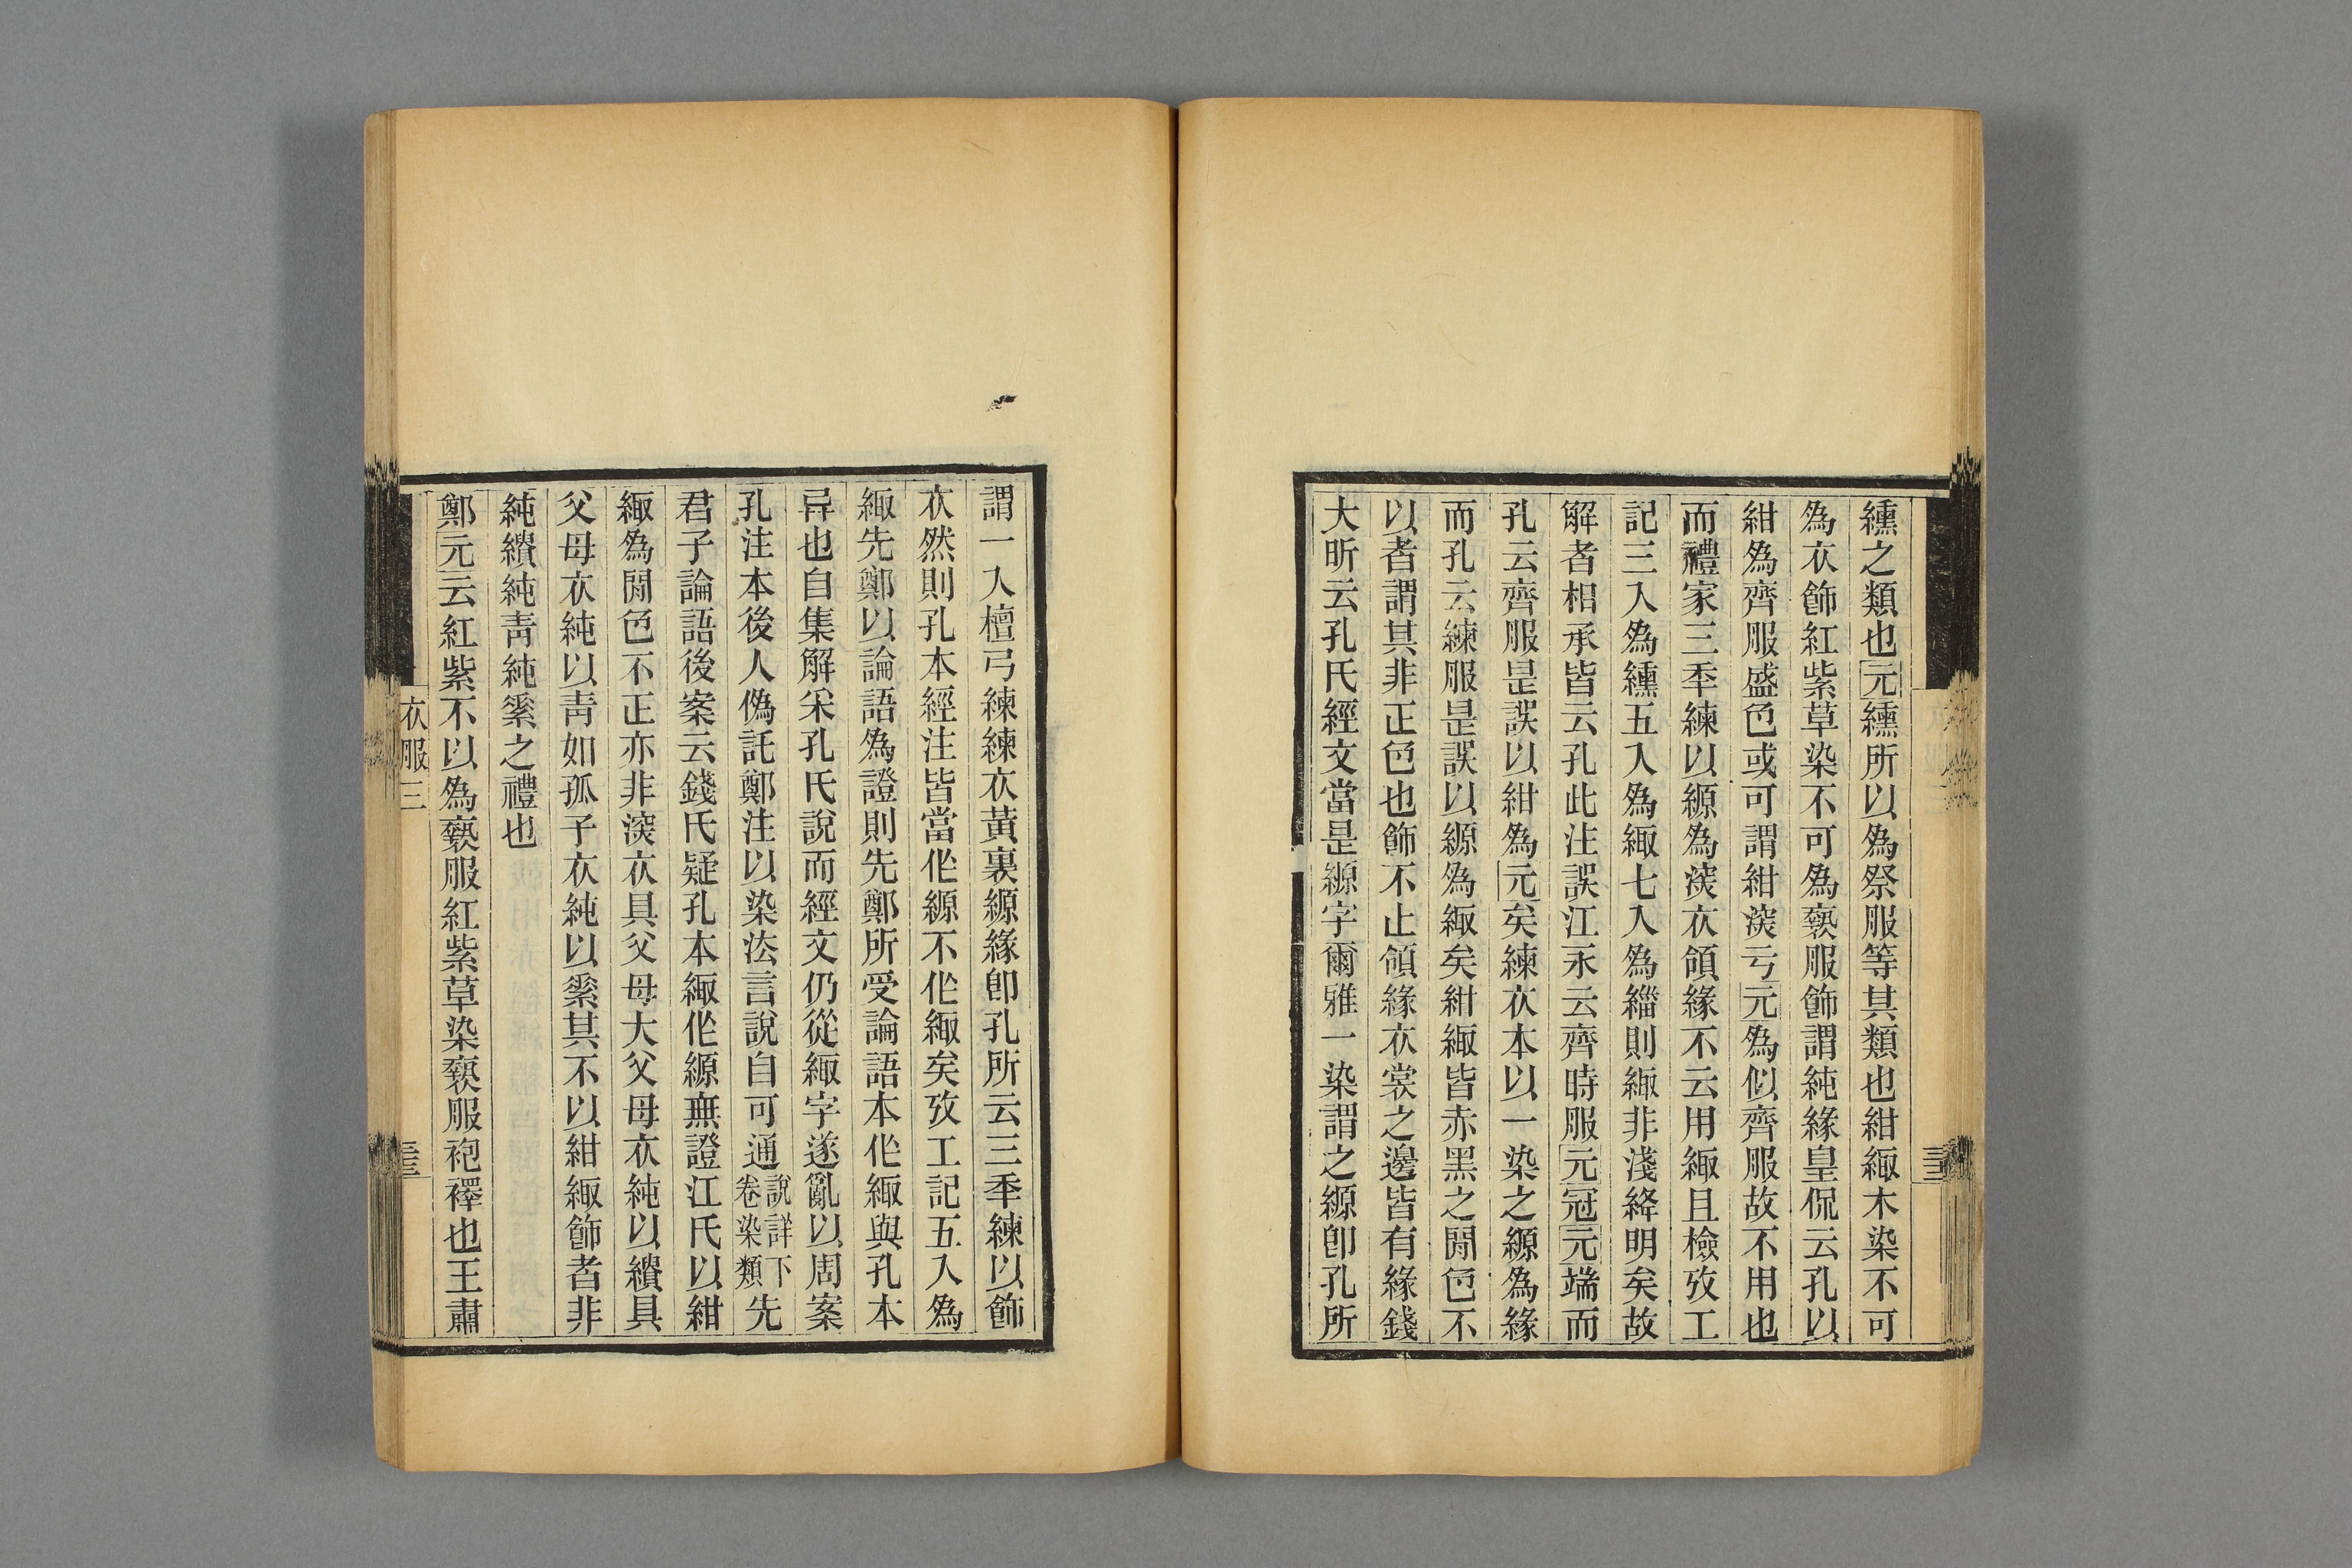 纁之類也元纁所以為祭服等其類也紺緅木染不可
為衣飾紅紫草染不可為褻服飾謂純緣皇侃云孔以
紺為齊服盛色或可謂紺深亏元為似齊服故不用也
而禮家三秊練以縓為深衣領緣不云用緅且檢攷工
記三入為纁五入為緅七入為緇則緅非淺絳明矣故
解者相承皆云孔此注誤江永云齊時服元冠元端而
孔云齊服是誤以紺為元矣練衣本以一染之縓為緣
而孔云練服是誤以縓為緅矣紺緅皆赤黑之閒色不
以者謂其非正色也飾不止領緣衣裳之邊皆有緣錢
大昕云孔氏經文當是縓字爾雅一染謂之縓卽孔所
謂一入檀弓練練衣黃裏縓緣卽孔所云三秊練以飾
衣然則孔本經注皆當作縓不作緅矣攷工記五入為
緅先鄭以論語為證則先鄭所受論語本作緅與孔本
异也自集解采孔氏說而經文仍從緅字遂亂以周案
孔注本後人偽託鄭注以染法言說自可通說詳下卷染類先
君子論語後案云錢氏疑孔本緅作縓無證江氏以紺
緅為閒色不正亦非深衣具父母大父母衣純以繢具
父母衣純以青如孤子衣純以素其不以紺緅飾者非
純繢純青純素之禮也
鄭元云紅紫不以為褻服紅紫草染褻服袍襗也王肅
衣服三